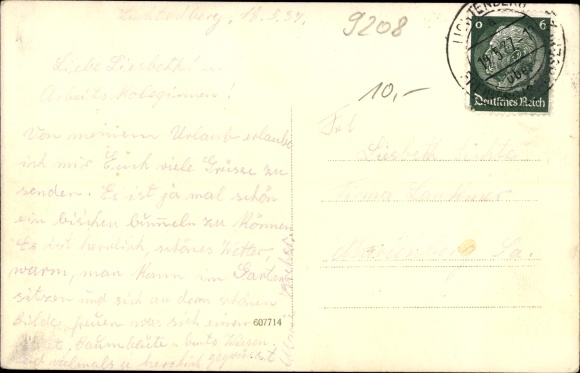 Lichtenberg, 19.5.37.
Liebe Liesbeth! u.
Arbeitskolleginnen!
Von meinem Urlaub erlaube
ich mir Euch viele Grüsse zu
senden. Es ist ja mal schön
ein bischen bummeln zu können.
Es ist herrlich, schönes Wetter,
warm, man kann im Garten
sitzen und sich an dem schönen
Bilde freuen was sich einem
Baumblüte - bunte Wiesen.
herzlich gegrüsst
9208
10,-
LICHTENBERG
19.5.37
6
Deutsches Reich
Frl.
Liesbeth
Firma
Marienberg Sa.
607714